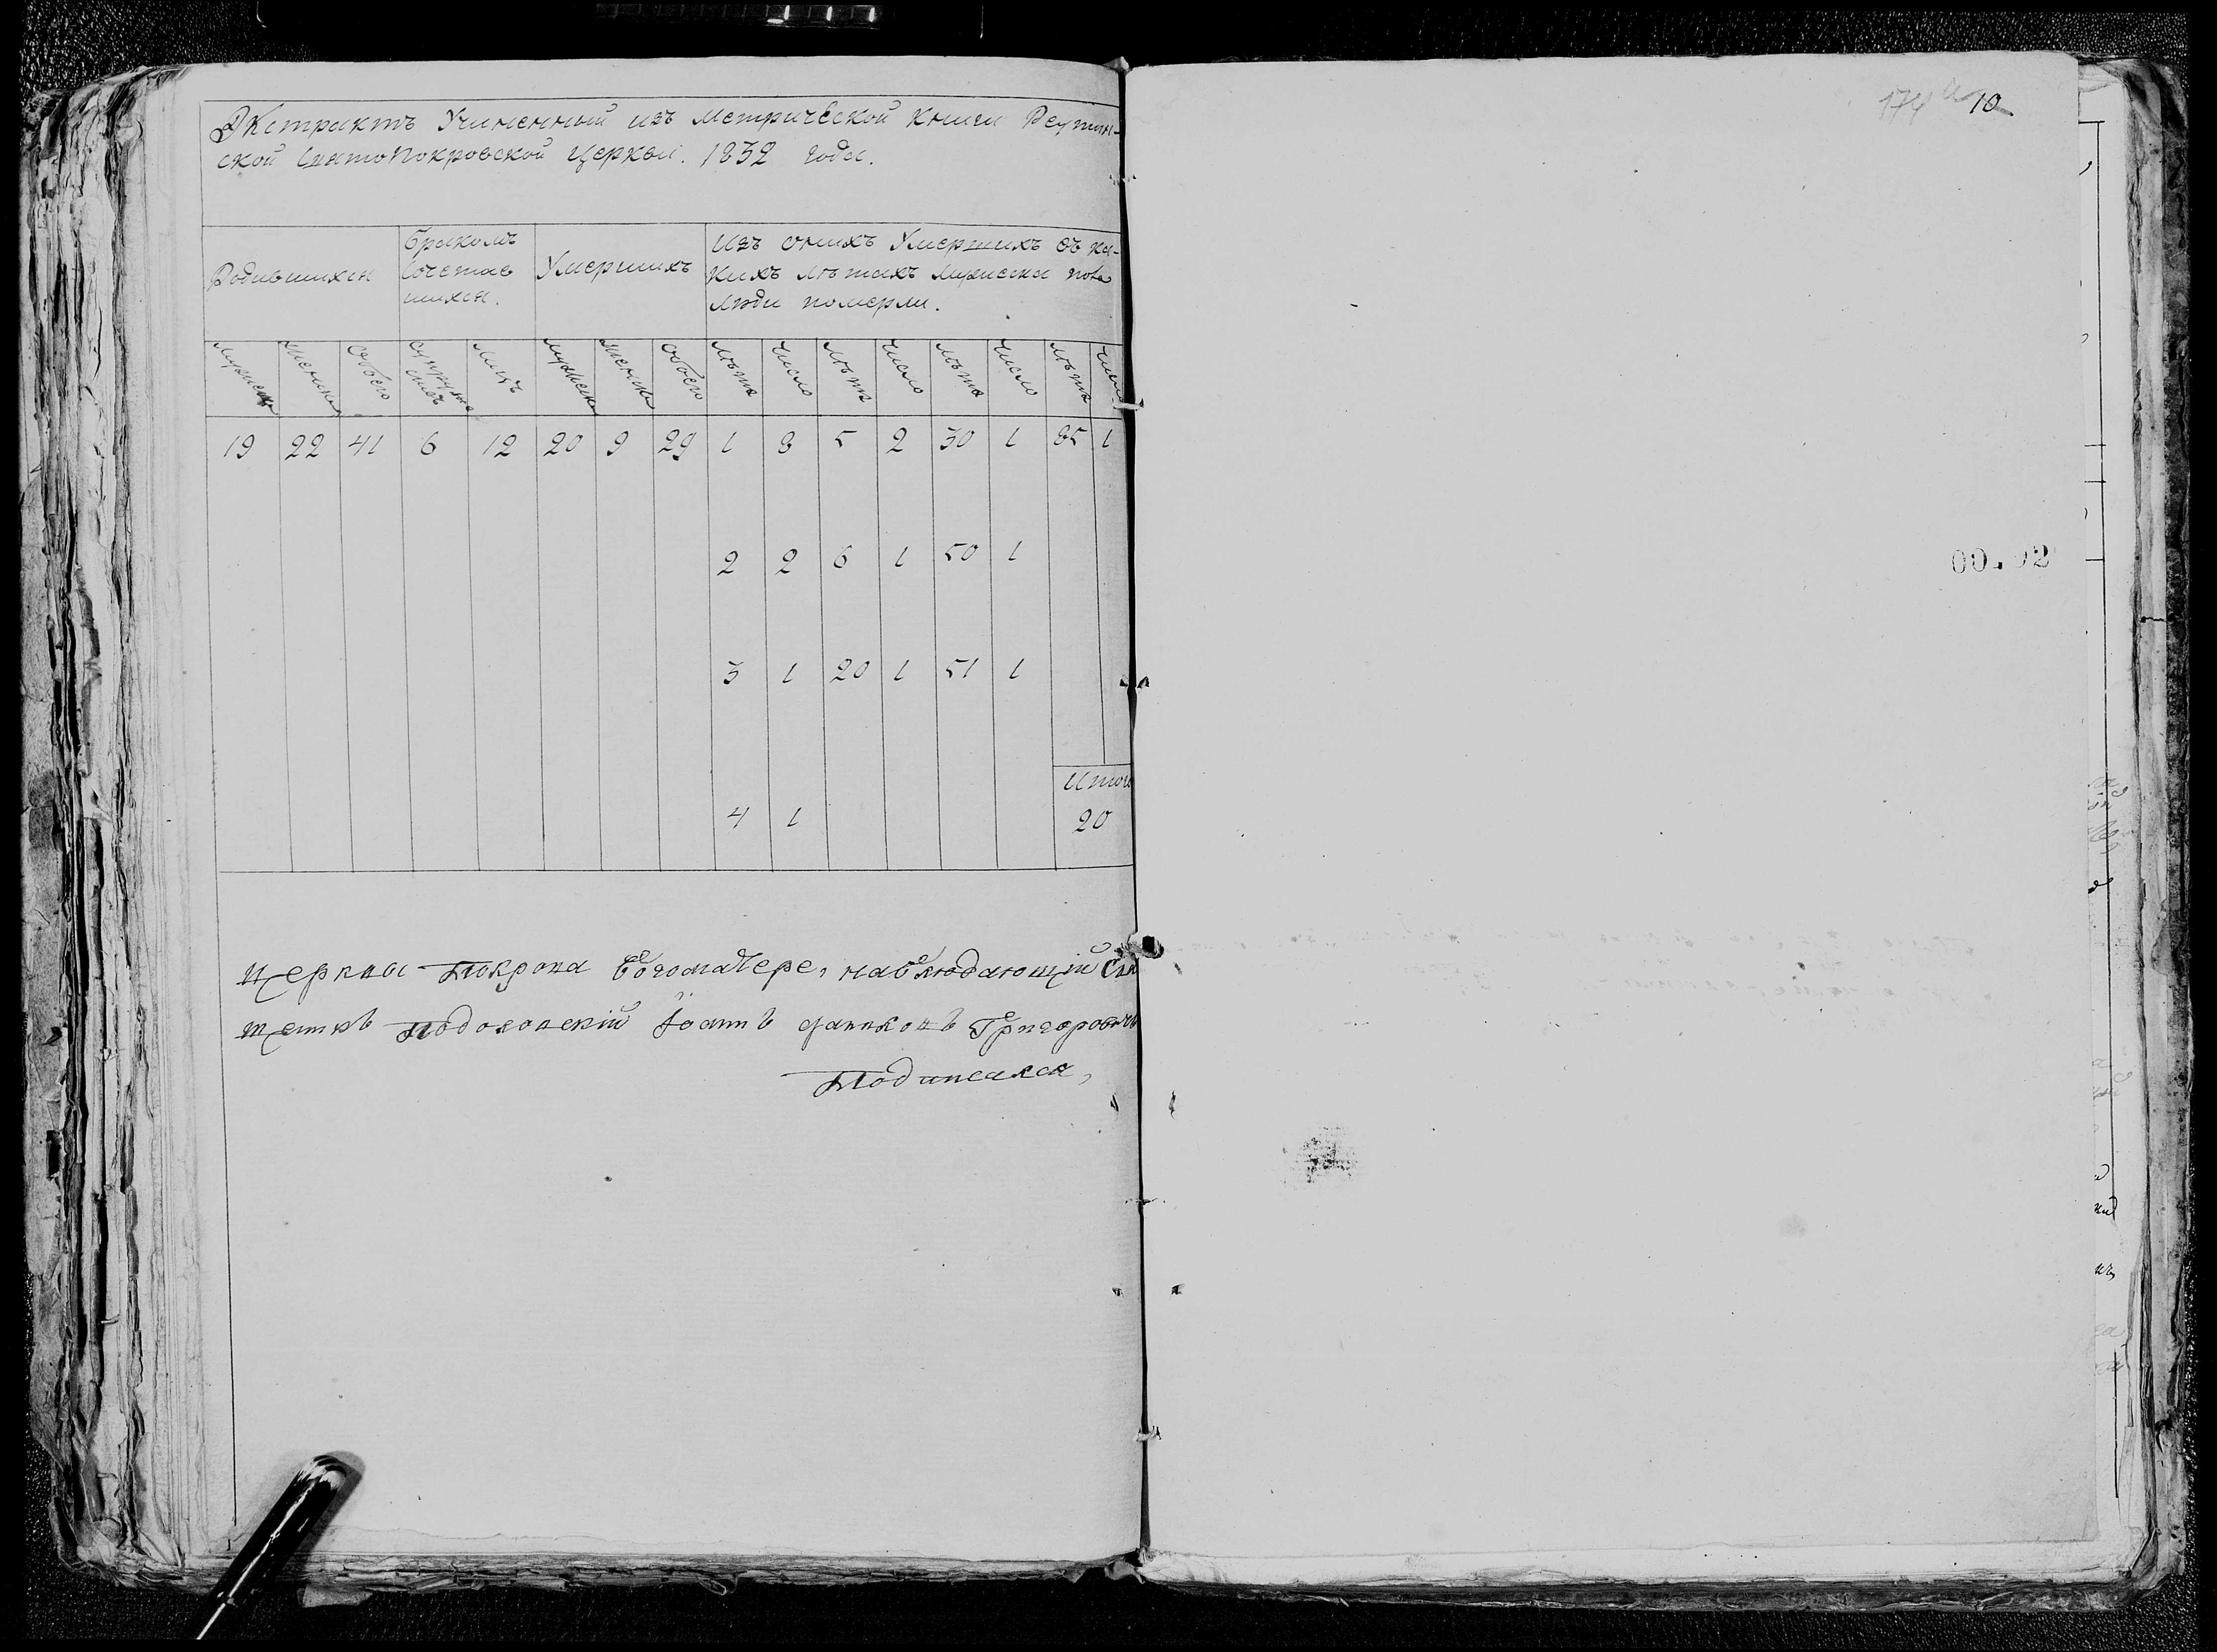 Экстрактъ Учиненный изъ метрической книги Реутин-
ской Святопокровской церкви. 1832 года.
Родившихся
Бракомъ
сочетав
шихся.
Умершихъ
Изъ онихъ Умершихъ въ ка-
кихъ лѣтахъ мужеска пола
люди померли.
мужеска женска обоего супружествъ лицъ мужеска женска обоего лѣта число лѣта число лѣта число лѣта число
19 22 41 6 12 20 9 29 1 8 5 2 30 1 85 1
2 2 6 1 50 1
3 1 20 1 51 1
Итого
4 1 20
церквы Покрова Богоматере, наблюдающій Свя
щеникъ Іоаннъ Григорович
Подписался,
174 10